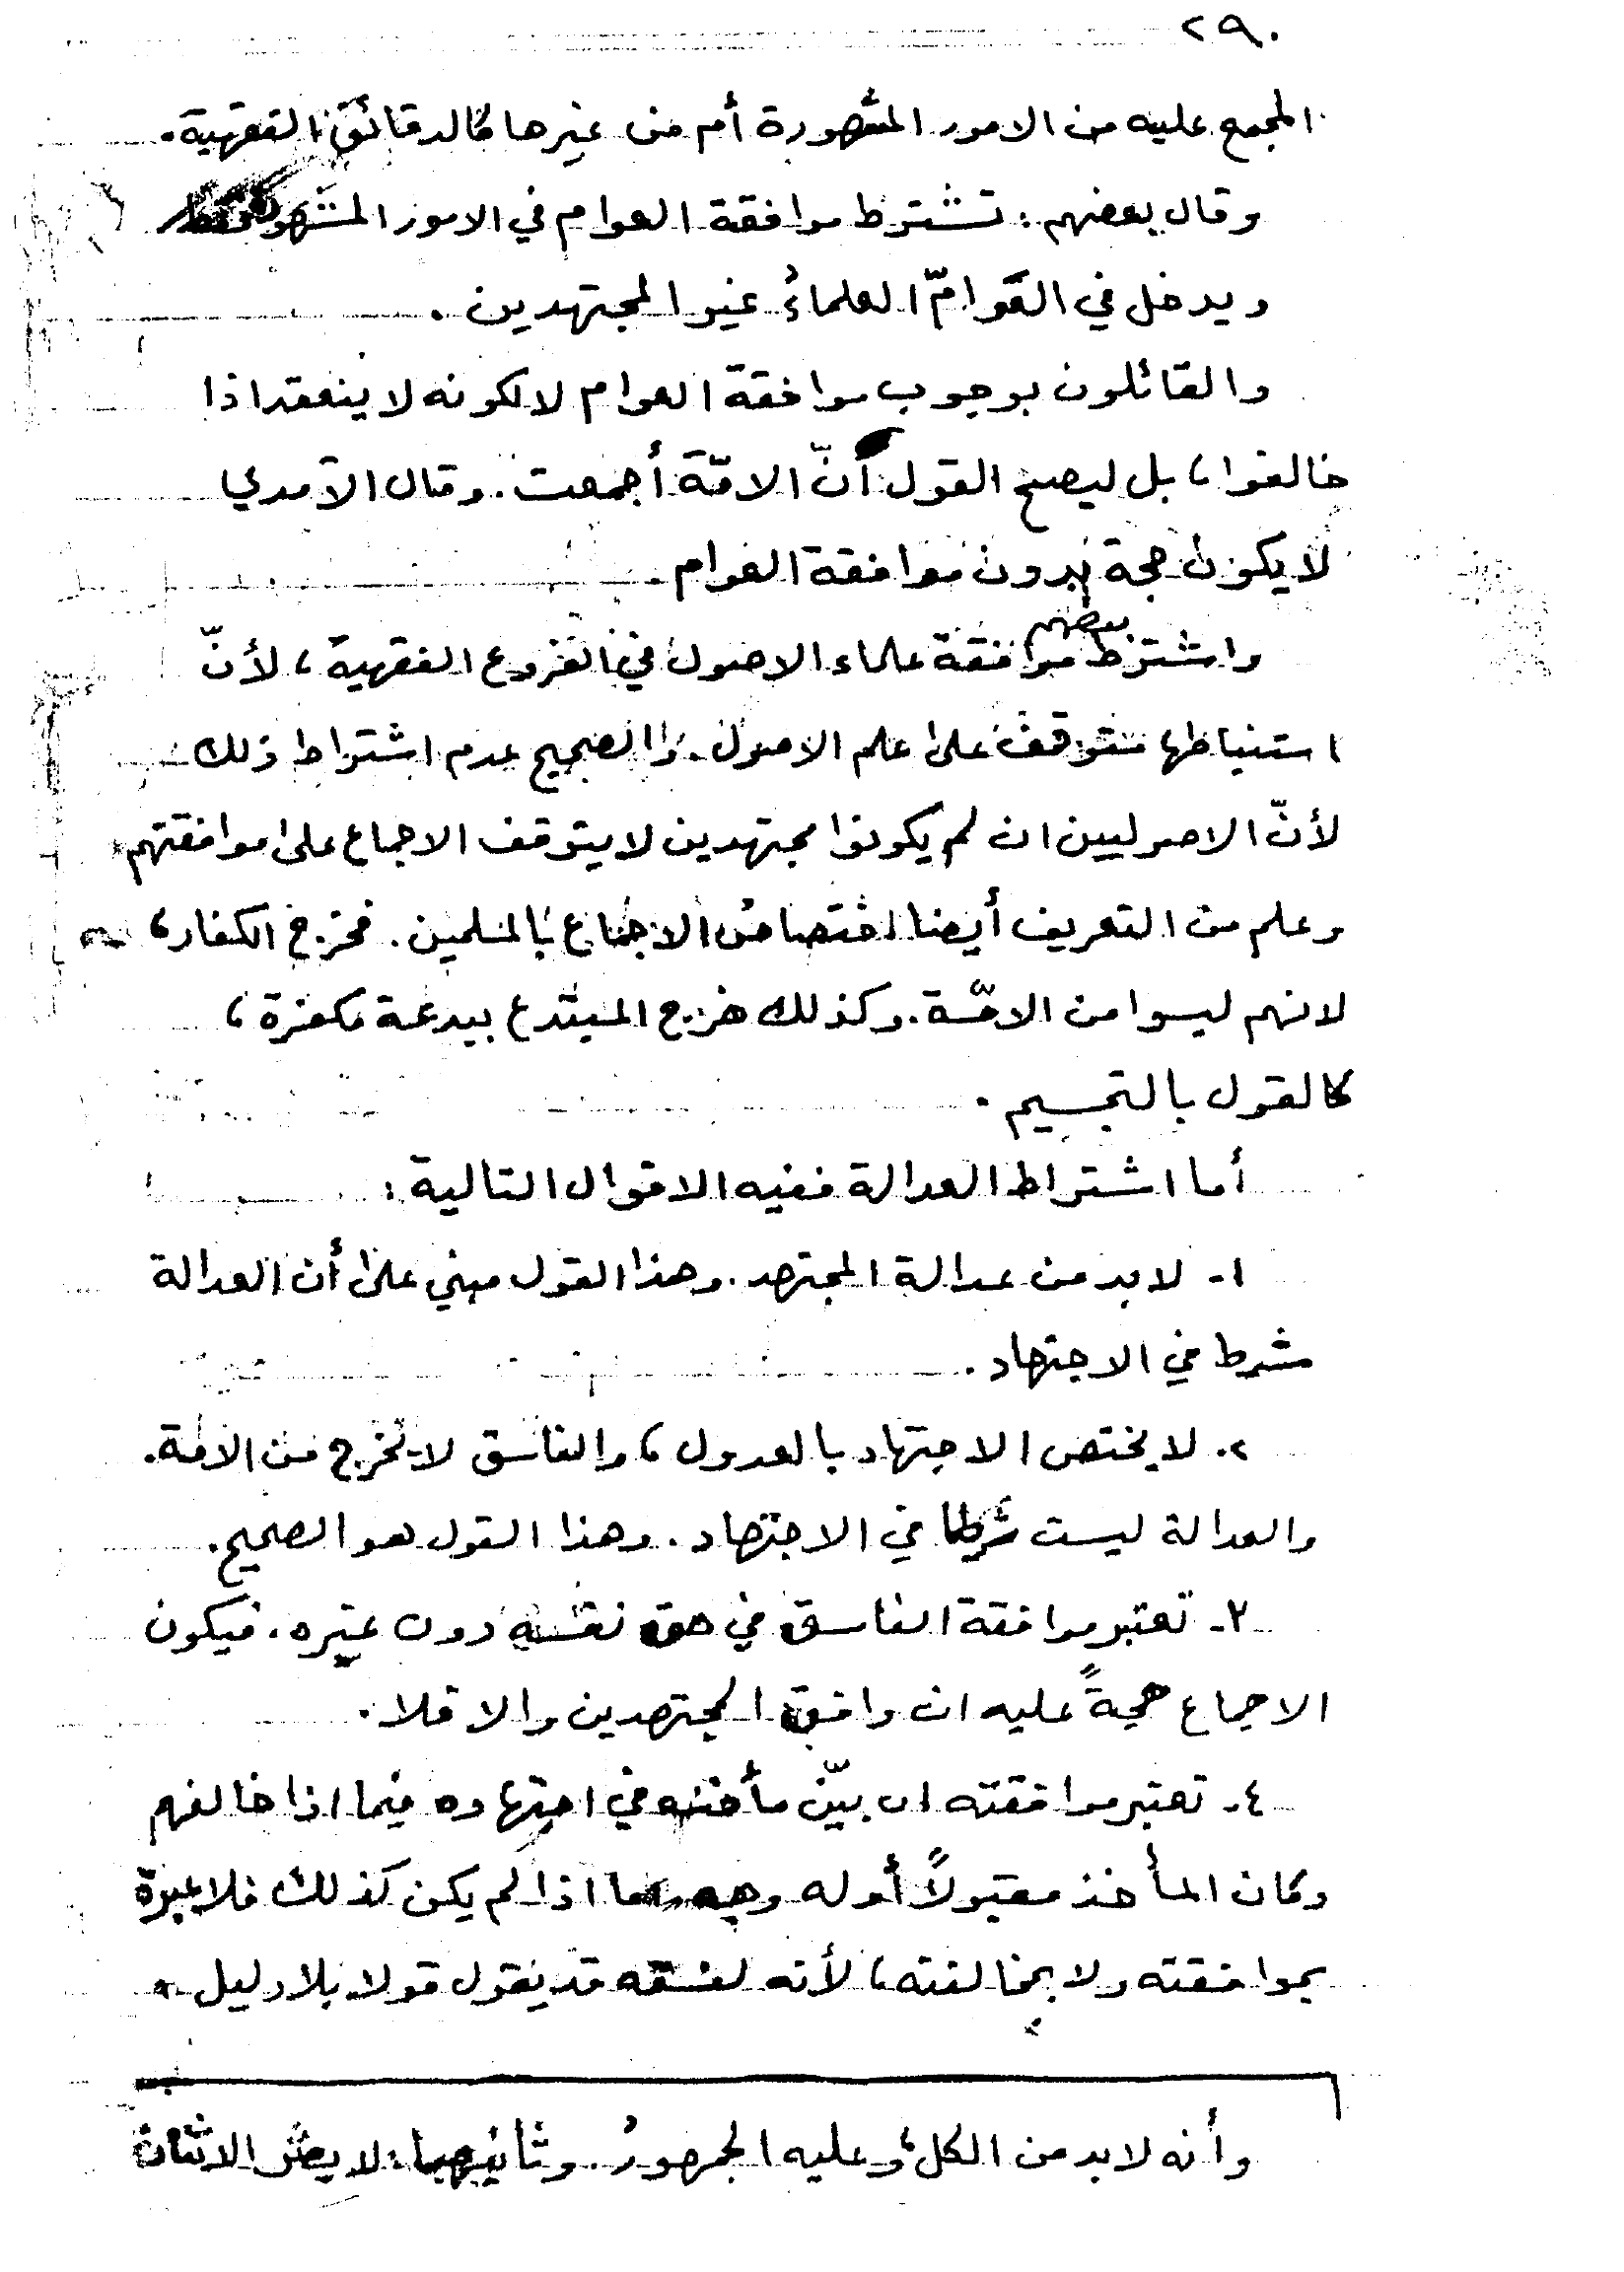 ٢٩٠
المجمع عليه من الامور المشهورة أم من غيرها كالدقائق الفقهية.
وقال بعضهم: تشترط موافقة العوام في الامور المشهورة فقط
ويدخل في العَوامّ العلماءُ غير المجتهدين.
والقائلون بوجوب موافقة العوام لا لكونه لا ينعقد اذا
خالفوا، بل ليصح القول أنّ الامّة أجمعت. وقال الآمدي
لا يكون حجة بدون موافقة العوام.
واشترط بعضهم موافقة علماء الاصول في الفروع الفقهية، لأنّ
استنباطها متوقف على علم الاصول. والصحيح عدم اشتراط ذلك
لأنّ الاصوليين ان لم يكونوا مجتهدين لا يتوقف الاجماع على موافقتهم
وعلم من التعريف أيضا اختصاصُ الاجماع بالمسلمين. فخرج الكفار،
لانهم ليسوا من الامّة. وكذلك خرج المبتدع ببدعة مكفرة،
كالقول بالتجسيم.
أما اشتراط العدالة ففيه الاقوال التالية:
١- لا بد من عدالة المجتهد. وهذا القول مبني على أن العدالة
شرط في الاجتهاد.
٢. لا يختص الاجتهاد بالعدول، والفاسق لا يخرج من الامة.
والعدالة ليست شرطا في الاجتهاد. وهذا القول هو الصحيح.
٣- تعتبر موافقة الفاسق في حق نفسه دون غيره. فيكون
الاجماع حجةً عليه ان وافق المجتهدين والا فلا.
٤- تعتبر موافقته ان بيّن مأخذه في اجتهاده فيما اذا خالفهم
وكان المأخذ مقبولاً أو له وجه. اما اذا لم يكن كذلك فلا عبرة
بموافقته ولا بمخالفته، لأنه لفسقه قد يقول قولا بلا دليل.
وأنه لا بد من الكل، وعليه الجمهورُ. وثانيها: لا يضر الاثنان